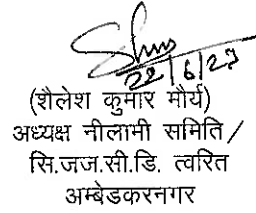 22/6/27
(शैलेश कुमार मौर्य)
अध्यक्ष नीलामी समिति/
सि.जज.सी.डि. त्वरित
अम्बेडकरनगर